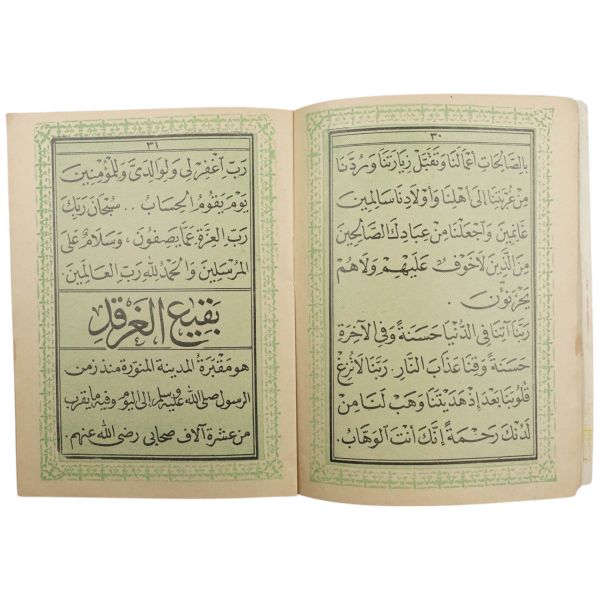 ٣٠
بِالصَّالِحَاتِ أَعْمَالَنَا وَتَقَبَّلْ زِيَارَتَنَا وَرُدَّنَا
مِنْ غُرْبَتِنَا إِلَى أَهْلِنَا وَأَوْلَادِنَا سَالِمِينَ
غَانِمِينَ وَاجْعَلْنَا مِنْ عِبَادِكَ الصَّالِحِينَ
مِنَ الَّذِينَ لَا خَوْفٌ عَلَيْهِمْ وَلَا هُمْ
يَحْزَنُونَ .
رَبَّنَا آتِنَا فِي الدُّنْيَا حَسَنَةً وَفِي الْآخِرَةِ
حَسَنَةً وَقِنَا عَذَابَ النَّارِ . رَبَّنَا لَا تُزِغْ
قُلُوبَنَا بَعْدَ إِذْ هَدَيْتَنَا وَهَبْ لَنَا مِنْ
لَدُنْكَ رَحْمَةً إِنَّكَ أَنْتَ الْوَهَّابُ .
٣١
رَبِّ اغْفِرْ لِي وَلِوَالِدَيَّ وَلِلْمُؤْمِنِينَ
يَوْمَ يَقُومُ الْحِسَابُ .. سُبْحَانَ رَبِّكَ
رَبِّ الْعِزَّةِ عَمَّا يَصِفُونَ ، وَسَلَامٌ عَلَى
الْمُرْسَلِينَ وَالْحَمْدُ لِلَّهِ رَبِّ الْعَالَمِينَ .
بَقِيعُ الْغَرْقَدِ
هُوَ مَقْبَرَةُ الْمَدِينَةِ الْمُنَوَّرَةِ مُنْذُ زَمَنِ
الرَّسُولِ صَلَّى اللهُ عَلَيْهِ وَسَلَّمَ إِلَى الْيَوْمِ وَفِيهِ مَا يَقْرُبُ
مِنْ عَشْرَةِ آلَافِ صَحَابِي رَضِيَ اللهُ عَنْهُمْ .